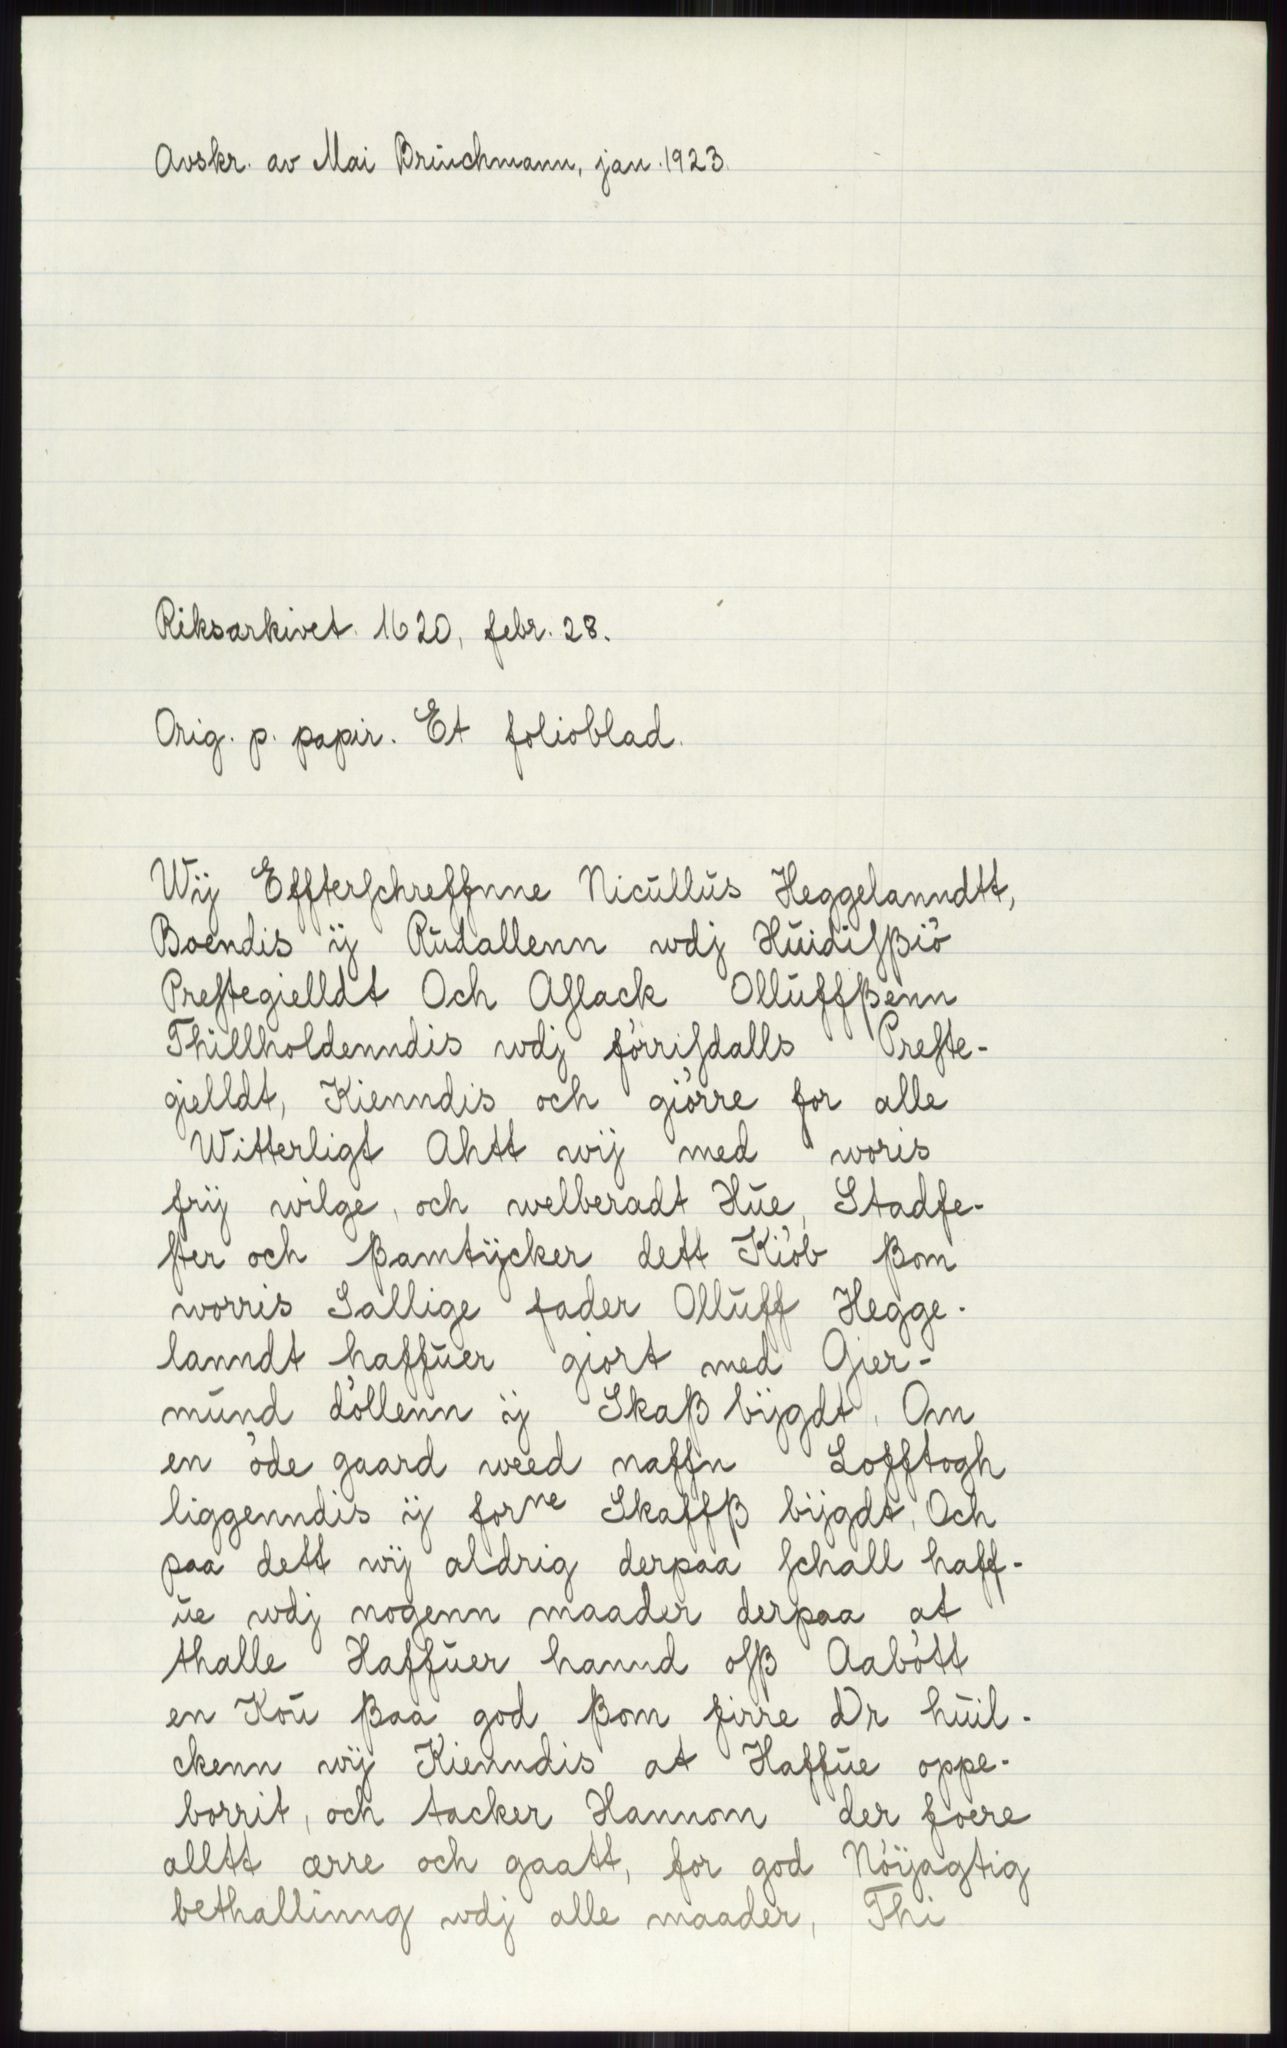 Avskr. av Mai Brŭchmann, jan. 1923.
Riksarkivet. 1620, febr. 28.
Orig. p. papir. Et folioblad.
Wÿ Effterſchreffnne Nicŭllŭs Heggelanndtt,
Boendis ÿ Rŭdallenn wdj Hŭidiſßiö
Preſtegielldt Och Aſlack Ollŭffßenn
Thillholdenndis wdj förriſdalls Preſte-
gielldt, Kienndis och giörre for alle
Witterligt Ahtt wÿ med woris
frÿ wilge, och welberadt Hŭe, Stadfe-
ſter och ßamtÿcker dett Kiöb ßom
worris Sallige fader Ollŭff Hegge-
lanndt haffŭer giort med Gier-
mŭnd döllenn ÿ Skaß bÿgdt, Om
en öde gaard weed naffn Lofftogh
liggenndis ÿ forne Skaffß bÿgdt, Och
paa dett wÿ aldrig derpaa ſchall haff-
ŭe wdj nogenn maader derpaa at
thalle Haffŭer hannd oſß Aabött
en Koŭ ßaa god ßom firre Dr hŭil-
ckenn wÿ Kienndis at Haffŭe oppe-
borrit, och tacker Hannom der foere
alltt ærre och gaatt, for god Nöÿagtig
bethallinng wdj alle maader, Thi